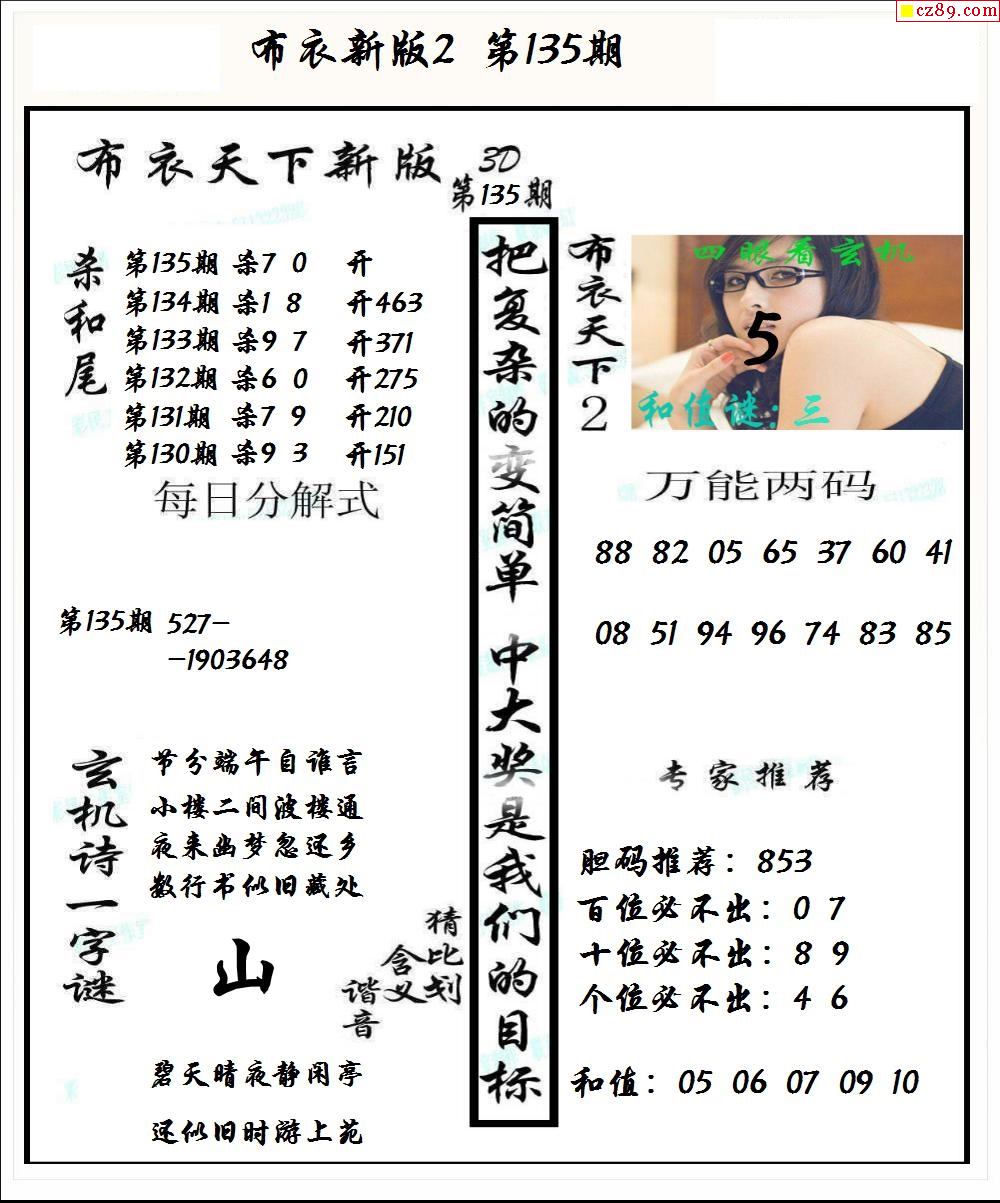 cz89.com
布衣新版2 第135期
布衣天下新版
3D
第135期
杀和尾
第135期 杀7 0 开
第134期 杀1 8 开463
第133期 杀9 7 开371
第132期 杀6 0 开275
第131期 杀7 9 开210
第130期 杀9 3 开151
每日分解式
第135期 527-
-1903648
玄机诗一字谜
节分端午自谁言
小楼二间波楼通
夜来幽梦忽还乡
数行书似旧藏处
山
猜比划
含义
谐音
碧天晴夜静闲亭
还似旧时游上苑
把复杂的变简单 中大奖是我们的目标
布衣天下2
四眼看玄机
5
和值谜:三
万能两码
88 82 05 65 37 60 41
08 51 94 96 74 83 85
专家推荐
胆码推荐：853
百位必不出：0 7
十位必不出：8 9
个位必不出：4 6
和值：05 06 07 09 10